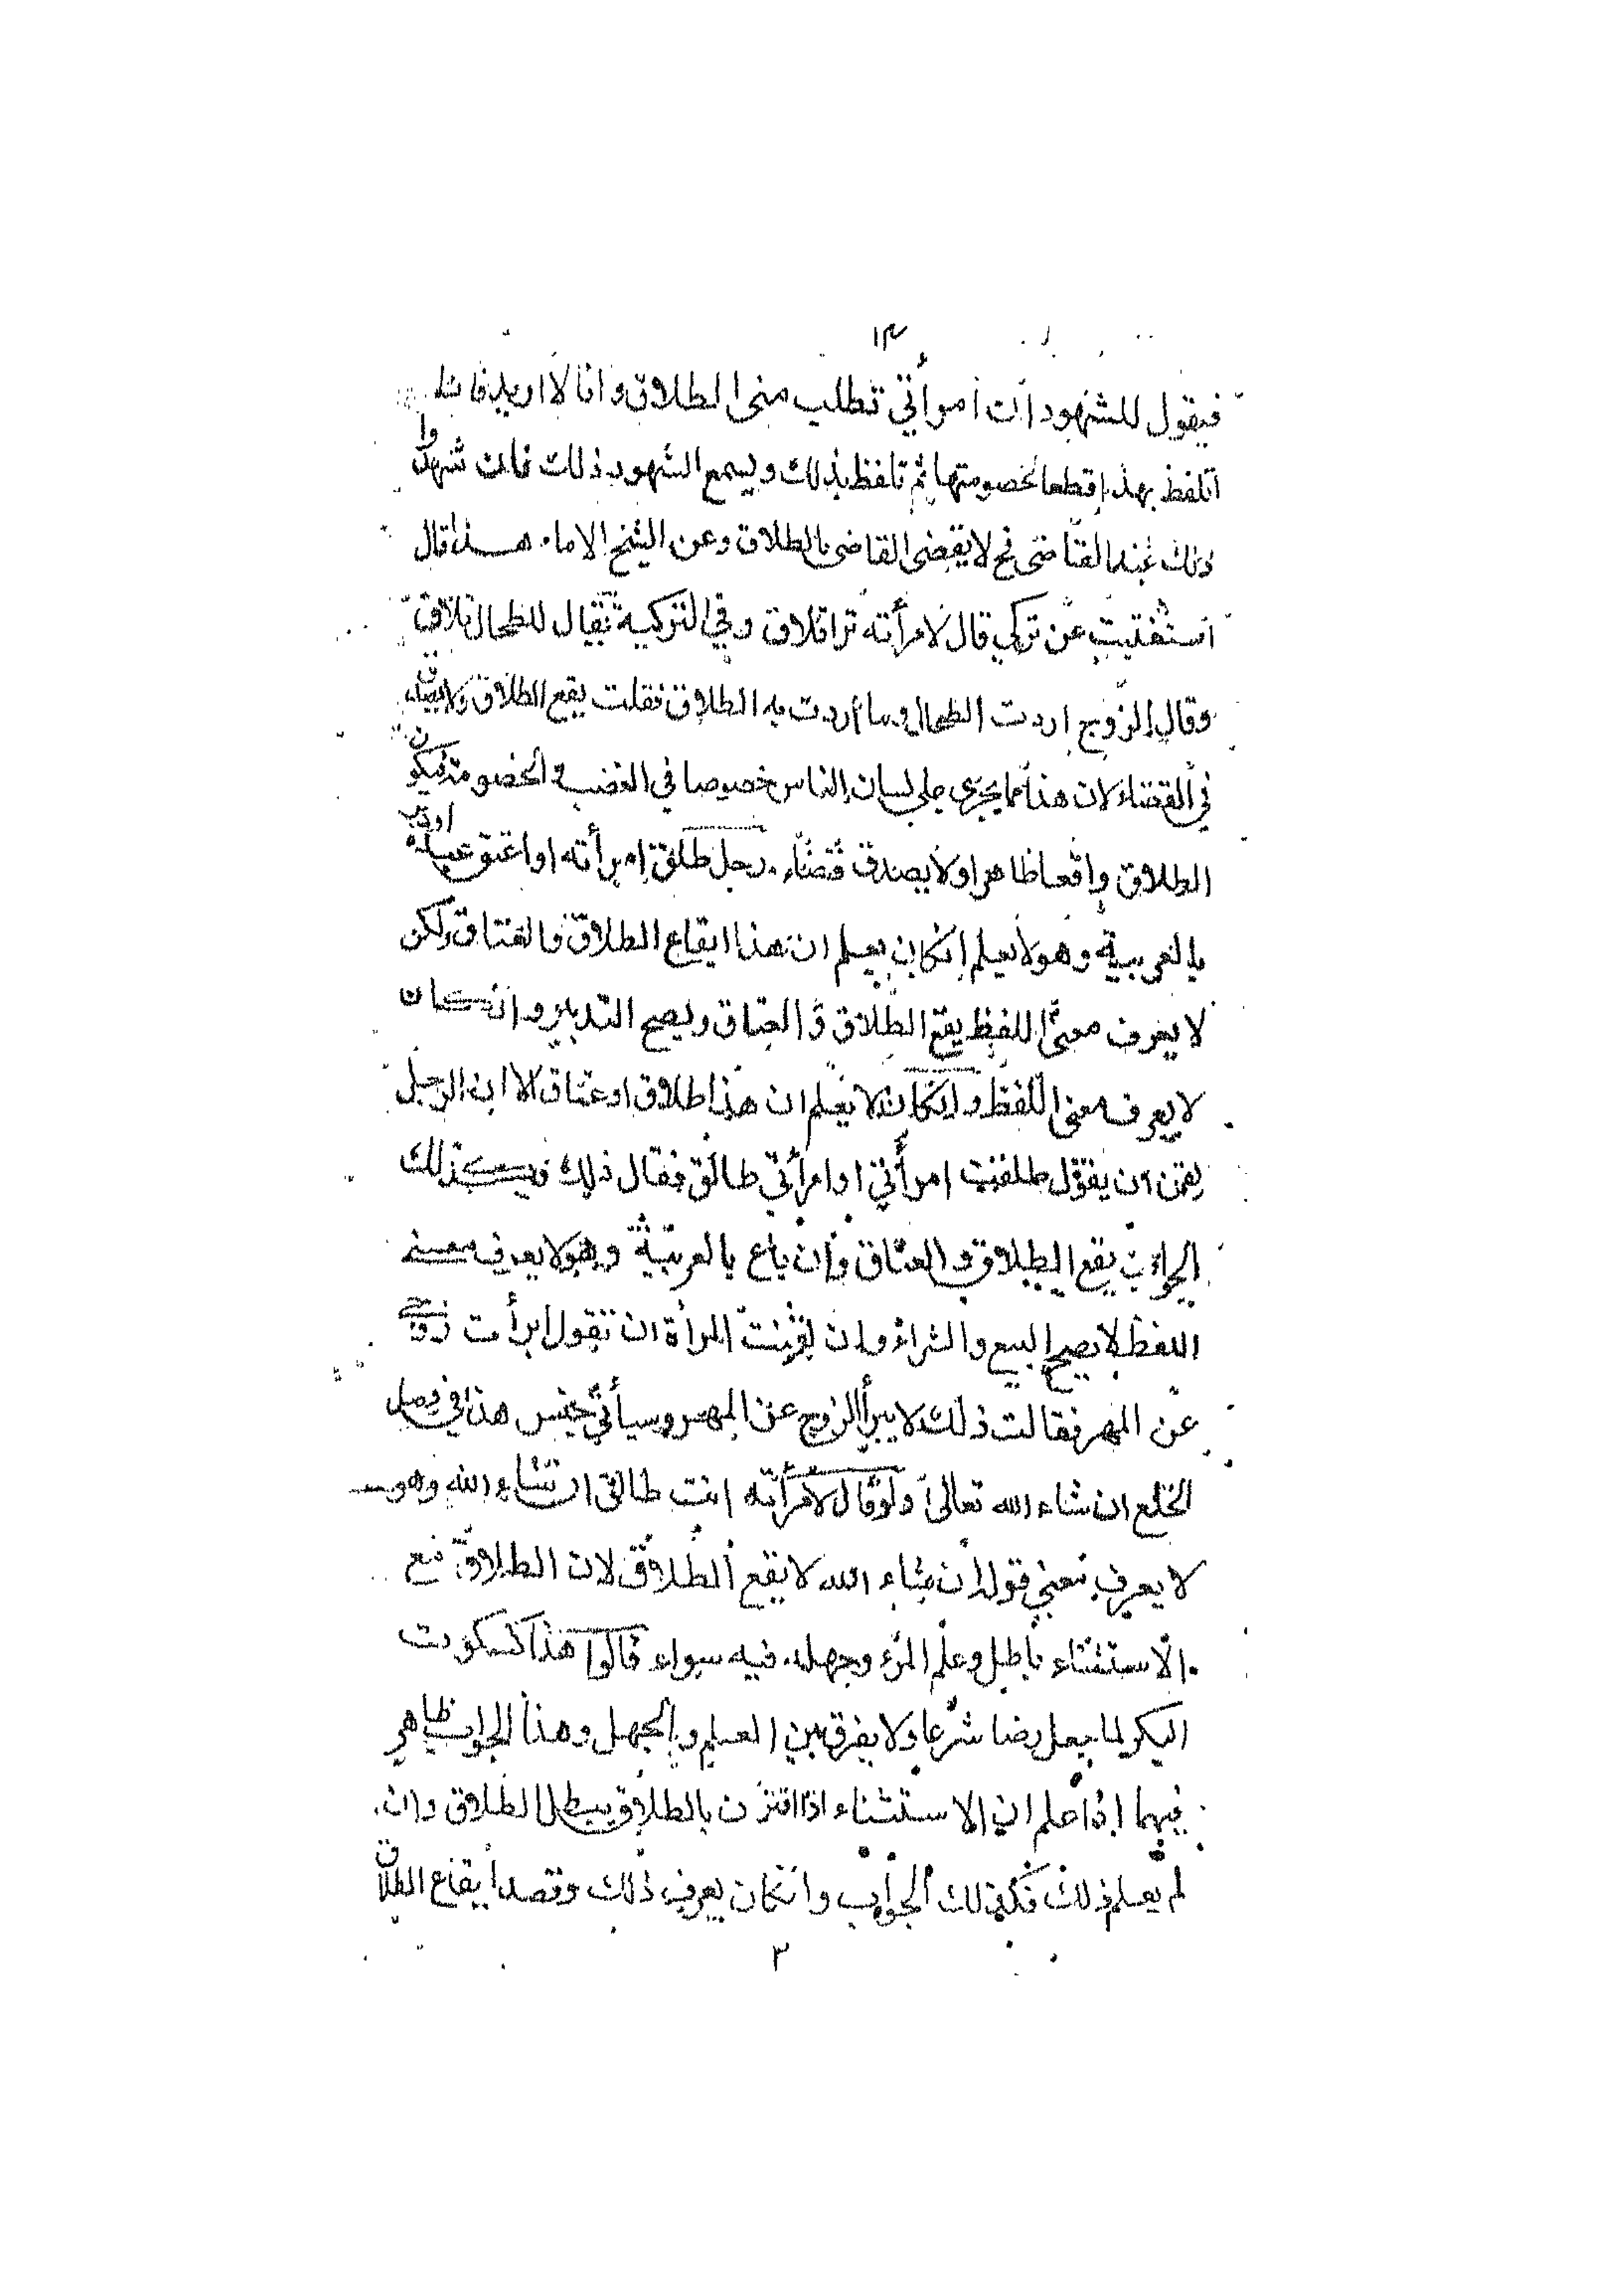 ١٣
فيقول للشهود ان امرأتي تطلب مني الطلاق وانا لا اريد فانا
اتلفظ بهذا قطعا لخصومتها ثم تلفظ بذلك ويسمع الشهود ذلك فان شهدوا
ذلك عند القاضى فح لا يقضى القاضى بالطلاق وعن الشيخ الامام هذا قال
استفتيت عن تركي قال لامرأته ترا قلاق وفي التركية يقال للطحال قلاق
وقال الزوج اردت الطحال وما اردت به الطلاق فقلت يقع الطلاق ولا يصدق
في القضاء لان هذا مما يجرى على لسان الناس خصوصا في الغضب والخصومة فيكون
الطلاق واقعا ظاهرا ولا يصدق قضاء. رجل طلق امرأته او اعتق عبده او دبر
بالعربية وهو لا يعلم انكان يعلم ان هذا ايقاع الطلاق والعتاق ولكن
لا يعرف معنى اللفظ يقع الطلاق والعتاق ويصح التدبير وانكان
لا يعرف معنى اللفظ وانكان لا يعلم ان هذا طلاق او عتاق الا ان الرجل
لقن ان يقول طلقت امرأتي او امرأتي طالق فقال ذلك فكذلك
الجواب يقع الطلاق والعتاق وان باع بالعربية وهو لا يعرف معنى
اللفظ لا يصح البيع والشراء وان لقنت المرأة ان تقول ابرأت زوجي
عن المهر فقالت ذلك لا يبرأ الزوج عن المهر وسيأتي جنس هذا في فصل
الخلع ان شاء الله تعالى ولو قال لامرأته انت طالق ان شاء الله وهو
لا يعرف معنى قوله ان شاء الله لا يقع الطلاق لان الطلاق مع
الاستثناء باطل وعلم المرء وجهله فيه سواء قالوا هذا كسكوت
البكر لما جعل رضا شرعا ولا يفرق بين العلم والجهل وهذا الجواب ظاهر
فيما اذا علم ان الاستثناء اذا اقترن بالطلاق يبطل الطلاق وان
لم يعلم ذلك فكذلك الجواب وانكان يعرف ذلك وقصد ايقاع الطلاق
٣